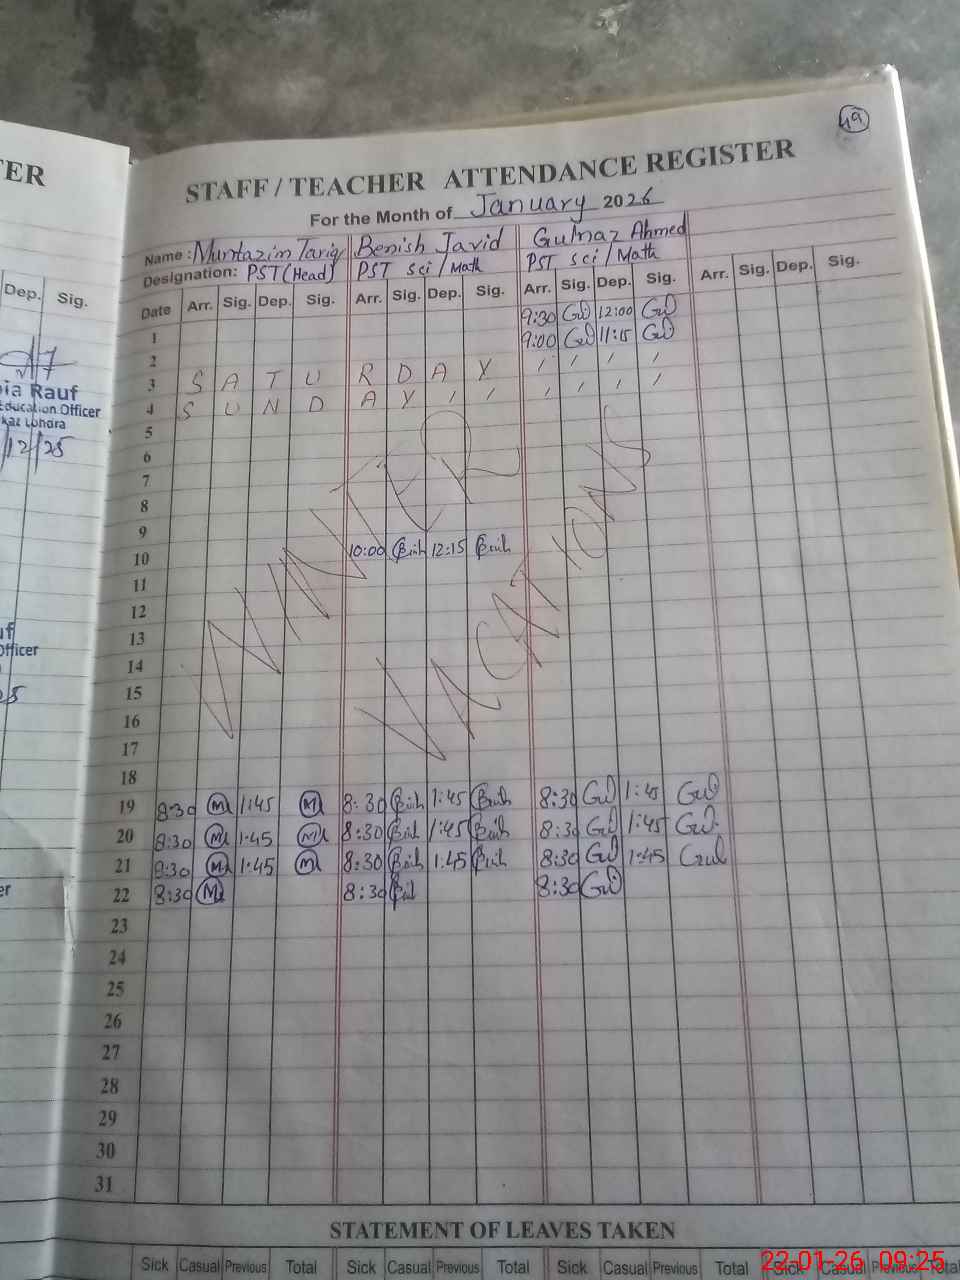 49
TER
STAFF / TEACHER ATTENDANCE REGISTER
For the Month of January 2026
Name : Muntazim Tariq Benish Javid Gulnaz Ahmed
Designation: PST (Head) PST Sci / Math PST Sci / Math
Dep. Sig.
Date Arr. Sig. Dep. Sig. Arr. Sig. Dep. Sig. Arr. Sig. Dep. Sig. Arr. Sig. Dep. Sig.
1 9:30 Gul 12:00 Gul
2 9:00 Gul 11:15 Gul
3 S A T U R D A Y
4 S U N D A Y
5
6
7
8
9
10 10:00 12:15
11
12
13
14
15
16
17
18
WINTER
VACATIONS
19 8:30 M 1:45 M 8:30 1:45 8:30 Gul 1:45 Gul
20 8:30 M 1:45 M 8:30 1:45 8:30 Gul 1:45 Gul
21 8:30 M 1:45 M 8:30 1:45 8:30 Gul 1:45 Gul
22 8:30 M 8:30 8:30 Gul
23
24
25
26
27
28
29
30
31
ia Rauf
Education Officer
12/25
uf
Officer
er
STATEMENT OF LEAVES TAKEN
Sick Casual Previous Total Sick Casual Previous Total Sick Casual Previous Total Sick Casual Previous Total
22-01-26 09:25